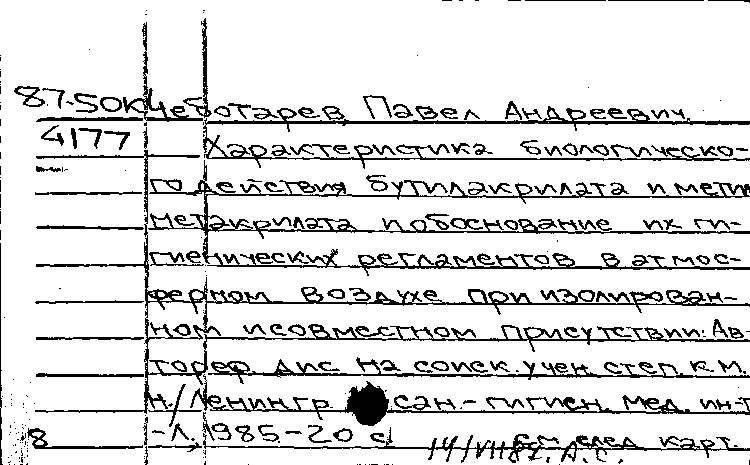 87-50К Чеботарев, Павел Андреевич.
4177 Характеристика биологическо-
го действия бутилакрилата и метил
метакрилата и обоснование их ги-
гиенических регламентов в атмос-
ферном воздухе при изолирован-
ном и совместном присутствии: Ав-
тореф. дис. на соиск. учен. степ. к.м.
н./Ленингр. сан.-гигиен. мед. ин-т
-Л., 1985-20 с.
8 см. след. карт.
14/VII87. А.С.